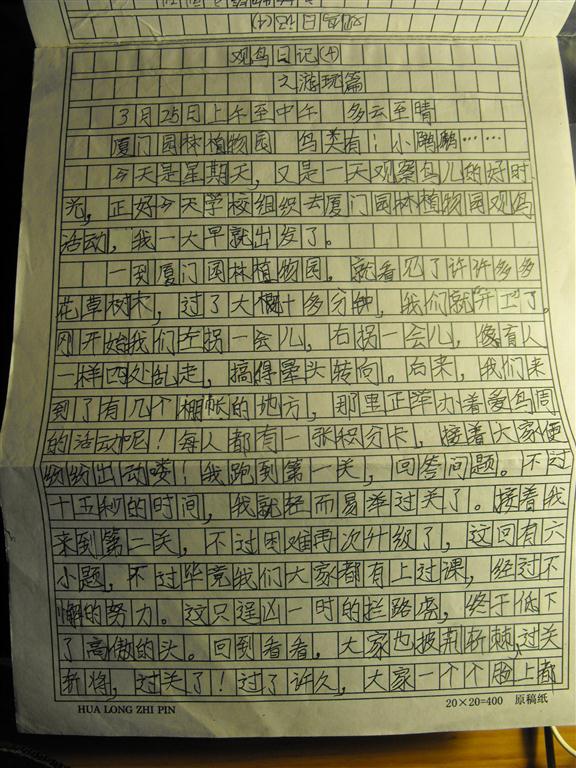 观鸟日记(4)
观鸟日记(4)
之游玩篇
3月25日上午至中午 多云至晴
厦门园林植物园 鸟类有:小䴙䴘……
今天是星期天,又是一天观察鸟儿的好时
光,正好今天学校组织去厦门园林植物园观鸟
活动,我一大早就出发了。
一到厦门园林植物园。就看见了许许多多
花草树木,过了大概十多分钟,我们就"开工"了。
刚开始我们左拐一会儿,右拐一会儿,像盲人
一样四处乱走,搞得晕头转向。后来,我们来
到了有几个棚帐的地方,那里正举办着爱鸟周
的活动呢!每人都有一张积分卡,接着大家便
纷纷出动喽!我跑到第一关,回答问题。不过
十五秒的时间,我就轻而易举过关了。接着我
来到第二关,不过困难再次升级了,这回有六
小题,不过毕竟我们大家都有上过课,经过不
懈的努力。这只逞凶一时的拦路虎,终于低下
了高傲的头。回到看看,大家也披荆斩棘,过关
斩将,过关了!过了许久,大家一个个脸上都
HUA LONG ZHI PIN
20×20=400 原稿纸